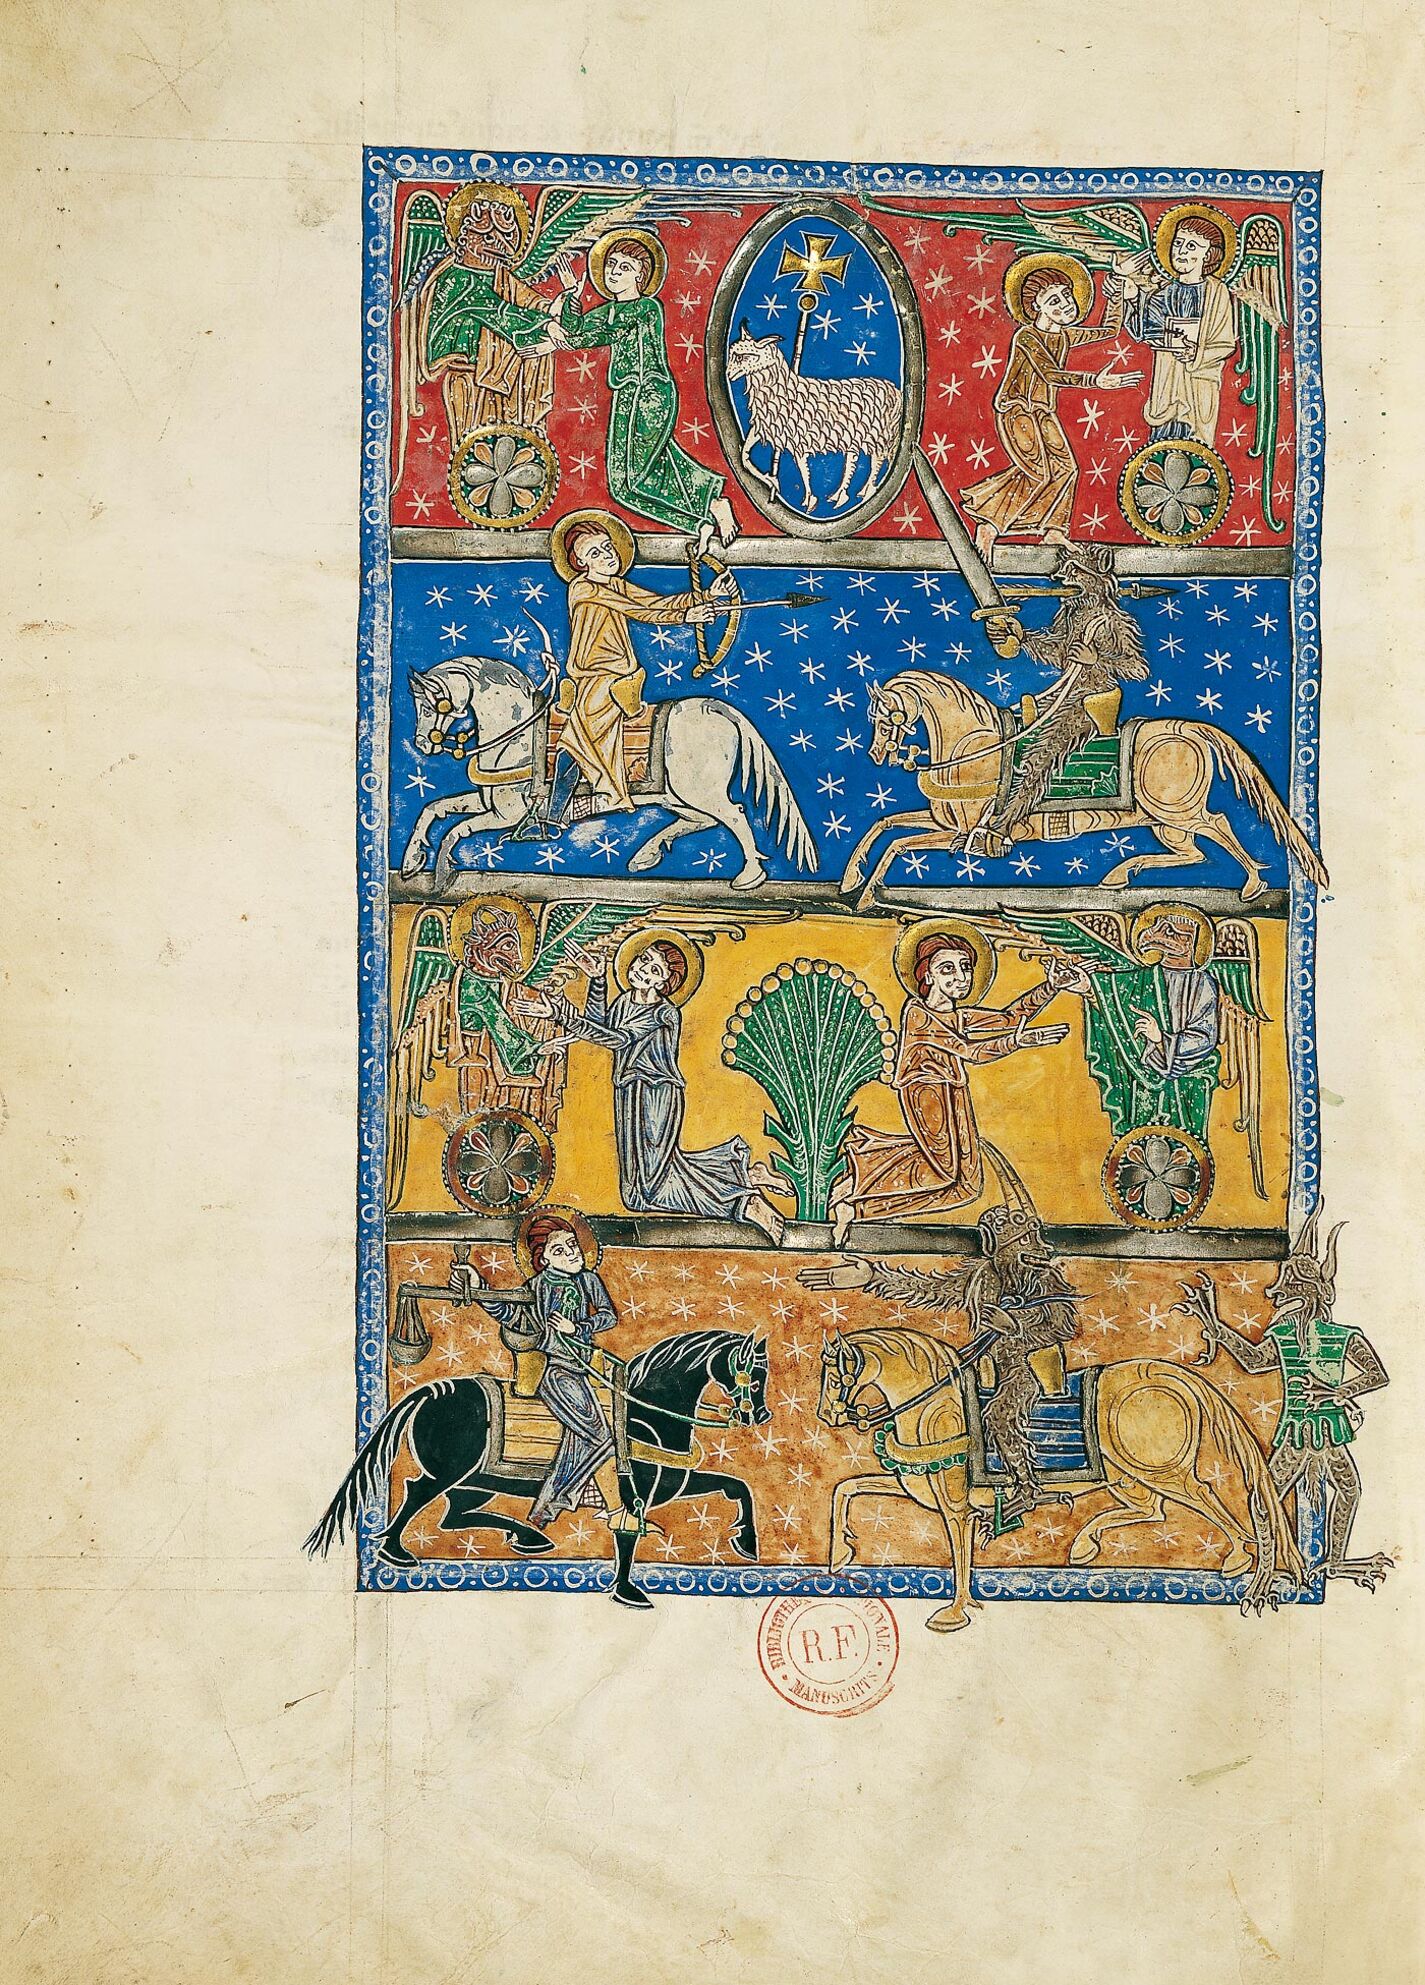 BIBLIOTHEQUE NATIONALE
R.F.
MANUSCRITS